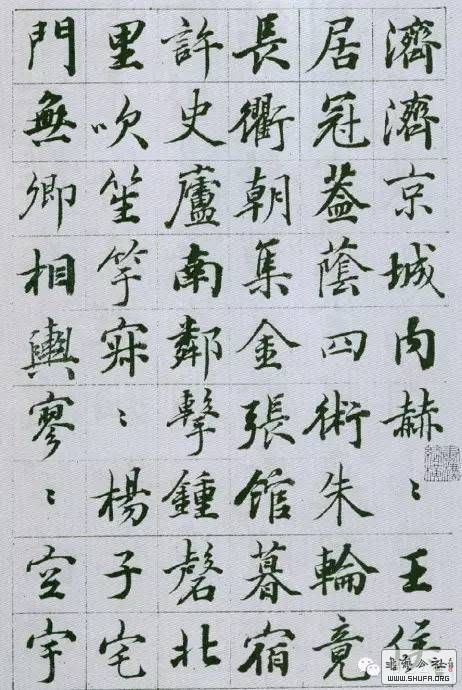 濟濟京城内赫〻王侯
居冠葢蔭四術朱輪竟
長衢朝集金張館暮宿
許史廬南鄰擊鍾磬北
里吹笙竽寂〻楊子宅
門無卿相輿寥〻空宇
WWW.SHUFA.ORG